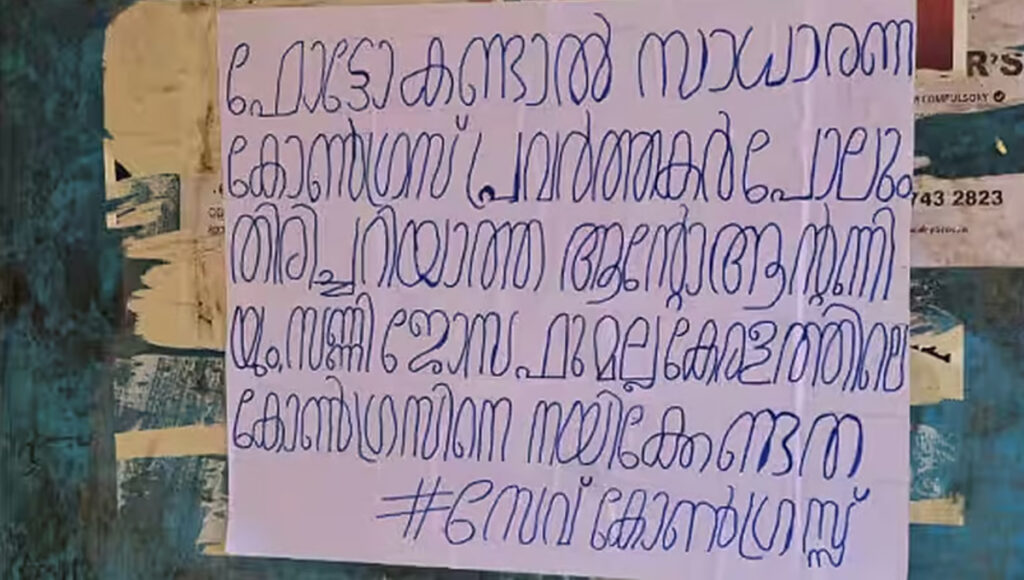 ഫോട്ടോ കണ്ടാൽ സാധാരണ
കോൺഗ്രസ് പ്രവർത്തകർ പോലും
തിരിച്ചറിയാത്ത ആന്റോ ആന്റണി
യും സണ്ണി ജോസഫുമല്ല കേരളത്തിലെ
കോൺഗ്രസിനെ നയിക്കേണ്ടത
#സേവ് കോൺഗ്രസ്സ്
R'S
COMPULSORY
743 2823